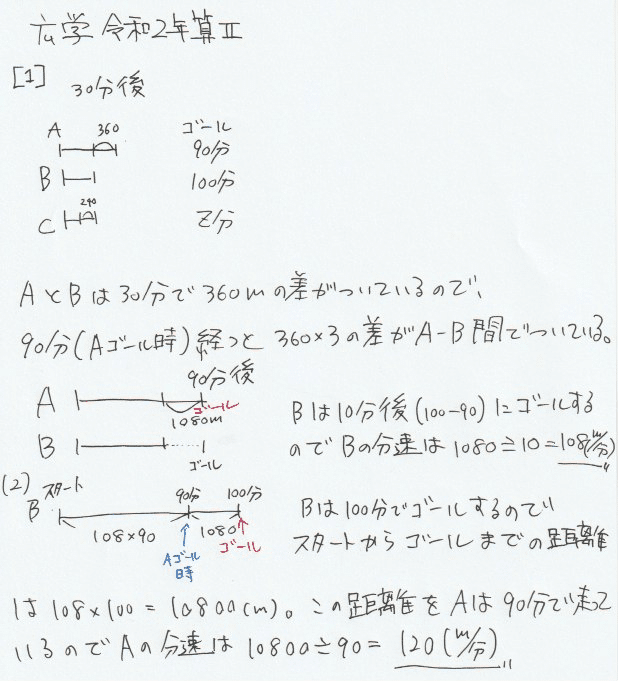 広学 令和2年算Ⅱ
[1] 30分後
A 360 ゴール
90分
B 100分
240
C Z分
AとBは30分で360mの差がついているので、
90分(Aゴール時)経つと 360×3の差がA-B間でついている。
90分後
A ゴール
1080m
B ゴール
Bは10分後(100-90)にゴールする
のでBの分速は1080÷10=108(m/分)〃
(2) スタート 90分 100分
B
108×90 1080
Aゴール時 ゴール
Bは100分でゴールするので
スタートからゴールまでの距離
は108×100=10800(m)。この距離をAは90分で走って
いるのでAの分速は10800÷90=120(m/分)〃